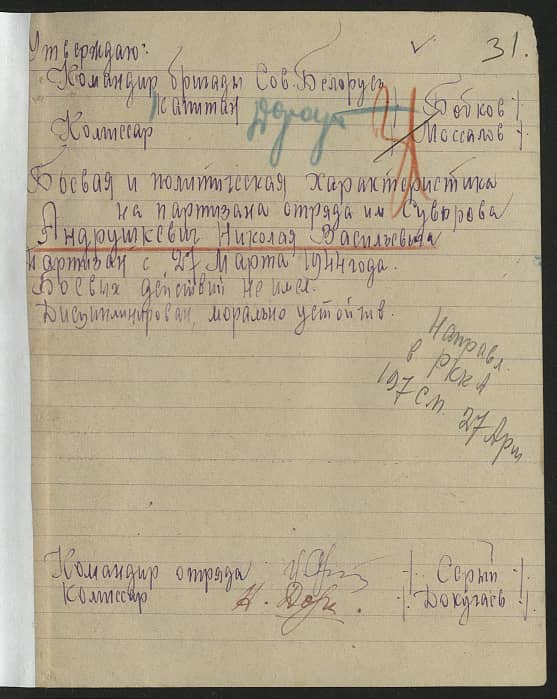 31.
Утверждаю:
Командир бригады Сов. Белорусь
Капитан /Бобков/
Комиссар /Моссалов/
Боевая и политическая характеристика
на партизана отряда им. Суворова
Андрушкевич Николая Васильевича
Партизан с 27 Марта 1944 года.
Боевых действий не имел.
Дисциплинирован, морально устойчив.
Направл.
в РККА
197 СП. 27 Арм
Командир отряда /Серый/
Комиссар /Докучаев/